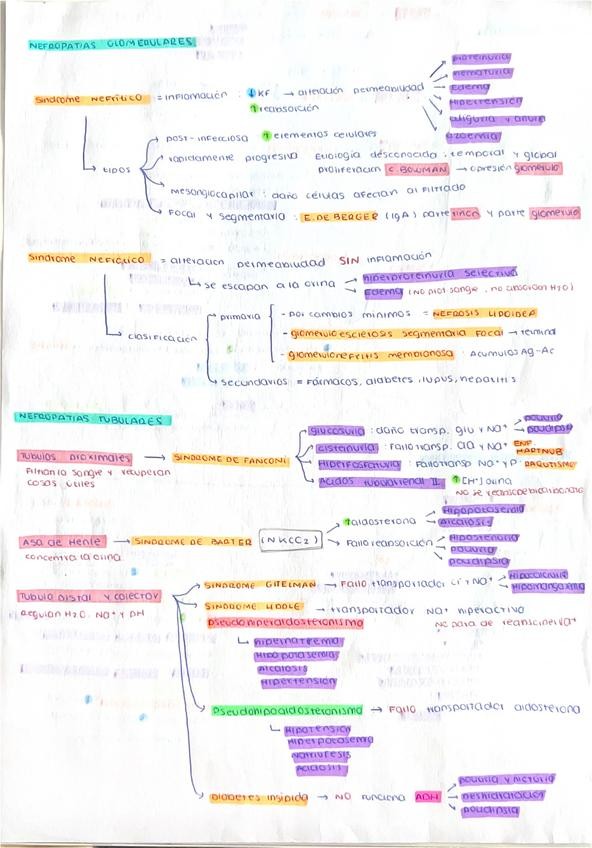 NEFROPATIAS GLOMERULARES
proteinuria
hematuria
Síndrome Nefrítico = inflamación : ↓KF → alteración permeabilidad
Edema
↑reabsorción
Hipertensión
oliguria y anuria
azoemia
post-infecciosa ↑elementos celulares
rapidamente progresiva Etiología desconocida : temporal y global
tipos
proliferación C. BOWMAN → opresión glomerulo
mesangiocapilar : daño células afectan al filtrado
Focal y segmentaria : E. DE BERGER (IgA) parte riñón y parte glomerulo
Síndrome Nefrótico = alteración permeabilidad SIN inflamación
↳ se escapan a la orina
hiperproteinuria selectiva
Edema (No prot sangre, no absorción H2O)
primaria
- por cambios mínimos = NEFROSIS LIPOIDEA
- glomeruloesclerosis segmentaria focal → terminal
clasificación
- glomerulonefritis membranosa : Acumulos Ag-Ac
secundarios = Fármacos, diabetes, lupus, hepatitis
NEFROPATIAS TUBULARES
glucosuria : daño transp. glu y Na+
poliuria
polidipsia
Tubulos proximales → SINDROME DE FANCONI
cistinuria : Fallo transp. aa y Na+ ENF. HARTNUB
Filtran la sangre y recuperan
cosas utiles
Hiperfosfaturia : Fallo transp Na+ y P RAQUITISMO
Acidosis tubular renal II ↑[H+] orina
No se reabsorbe bicarbonato
Hipopotasemia
↑aldosterona
Alcalosis
Asa de Henle → SINDROME DE BARTER (NKCC2)
concentra la orina
Fallo reabsorción
Hipotensión
poliuria
polidipsia
Tubulo Distal y colector
Regulan H2O, Na+ y pH
SINDROME GITELMAN → Fallo transportador Cl y Na+
Hipocalciuria
Hipomagnasemia
SINDROME LIDDLE → transportador Na+ hiperactivo
pseudohiperaldosteronismo
No para de reabsorber Na+
↳ Hipernatremia
Hipopotasemia
Alcalosis
Hipertensión
Pseudohipoaldosteronismo → Fallo transportador aldosterona
↳ Hipotension
Hiperpotasemia
Natriuresis
Acidosis
Diabetes insípida → NO funciona ADH
poliuria y nicturia
deshidratación
polidipsia